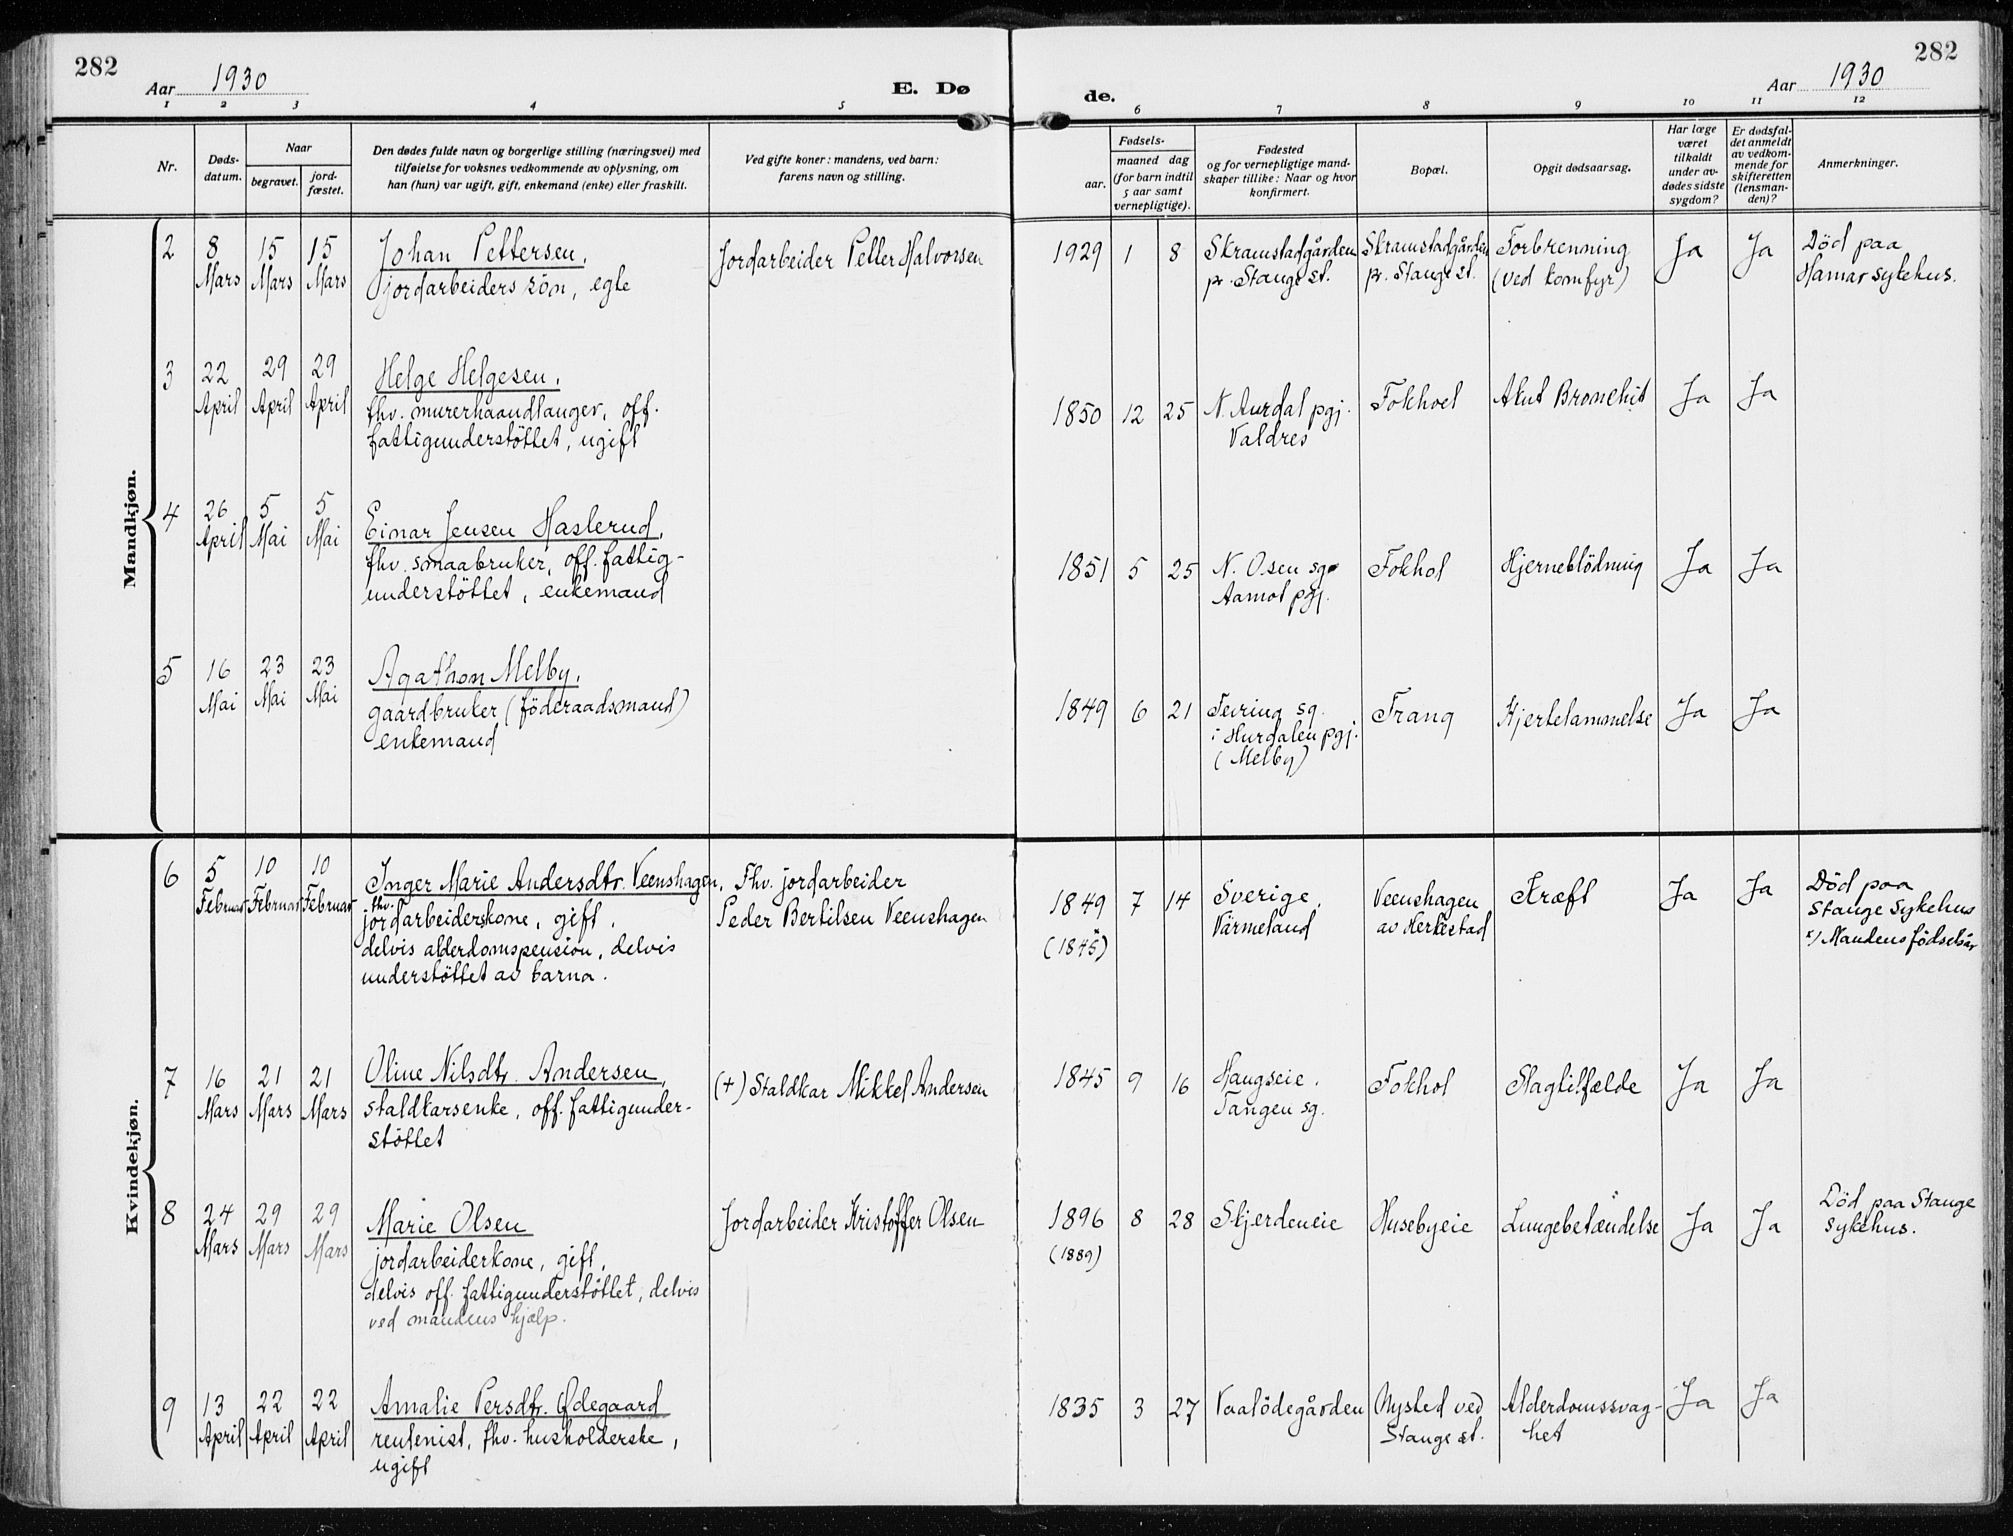 282
Aar 1930
E. Dø
de.
Aar 1930
282
1 2 3 4 5 6 7 8 9 10 11 12
Nr.
Døds-
datum.
Naar
begravet.
jord-
fæstet.
Den dødes fulde navn og borgerlige stilling (næringsvei) med
tilføielse for voksnes vedkommende av oplysning, om
han (hun) var ugift, gift, enkemand (enke) eller fraskilt.
Ved gifte koner: mandens, ved barn:
farens navn og stilling.
Fødsels-
aar.
maaned dag
(for barn indtil
5 aar samt
vernepligtige).
Fødested
og for vernepligtige mand-
skaper tillike: Naar og hvor
konfirmert.
Bopæl.
Opgit dødsaarsag.
Har læge
været
tilkaldt
under av-
dødes sidste
sygdom?
Er dødsfal-
det anmeldt
av vedkom-
mende for
skifteretten
(lensman-
den)?
Anmerkninger.
Mandkjøn.
2
8
Mars
15
Mars
15
Mars
Johan Pettersen,
jordarbeiders søn, egte
Jordarbeider Petter Halvorsen
1929 1 8
Skramstadgården
pr. Stange st.
Skramstadgården
pr. Stange st.
Forbrenning
(ved komfyr)
Ja
Ja
Død paa
Hamar sykehus.
3
22
April
29
April
29
April
Helge Helgesen,
fhv. murerhaandlanger, off.
fattigunderstöttet, ugift
1850 12 25
N. Aurdal pgj.
Valdres
Fokhol
Akut Bronchit
Ja
Ja
4
26
April
5
Mai
5
Mai
Einar Jensen Haslerud,
fhv. smaabruker, off. fattig-
understöttet, enkemand
1851 5 25
N. Osen sg.
Aamot pgj.
Fokhol
Hjerneblödning
Ja
Ja
5
16
Mai
23
Mai
23
Mai
Agathon Melby,
gaardbruker (föderaadsmand)
enkemand
1849 6 21
Feiring sg.
i Hurdalen pgj.
(Melby)
Frang
Hjertelammelse
Ja
Ja
Kvindekjøn.
6
5
Februar
10
Februar
10
Februar
Inger Marie Andersdtr. Veenshagen,
fhv.
jordarbeiderskone, gift,
delvis alderdomspension, delvis
understöttet av barna.
Fhv. jordarbeider
Peder Bertilsen Veenshagen
1849 7 14
(1845x)
Sverige,
Värmeland
Veenshagen
av Herkestad
Kræft
Ja
Ja
Död paa
Stange Sykehus
x) Mandens födselsår
7
16
Mars
21
Mars
21
Mars
Oline Nilsdtr. Andersen,
staldkarsenke, off. fattigunder-
stöttet
(+) Staldkar Mikkel Andersen
1845 9 16
Haugseie,
Tangen sg.
Fokhol
Slagtilfælde
Ja
Ja
8
24
Mars
29
Mars
29
Mars
Marie Olsen
jordarbeiderkone, gift,
delvis off. fattigunderstöttet, delvis
ved mandens hjælp.
Jordarbeider Kristoffer Olsen
1896 8 28
(1889)
Skjerdeneie
Husebyeie
Lungebetændelse
Ja
Ja
Död paa Stange
Sykehus.
9
13
April
22
April
22
April
Amalie Persdtr. Ødegaard
rentenist, fhv. husholderske,
ugift
1835 3 27
Vaalödegården
Nysted ved
Stange st.
Alderdomssvag-
het
Ja
Ja